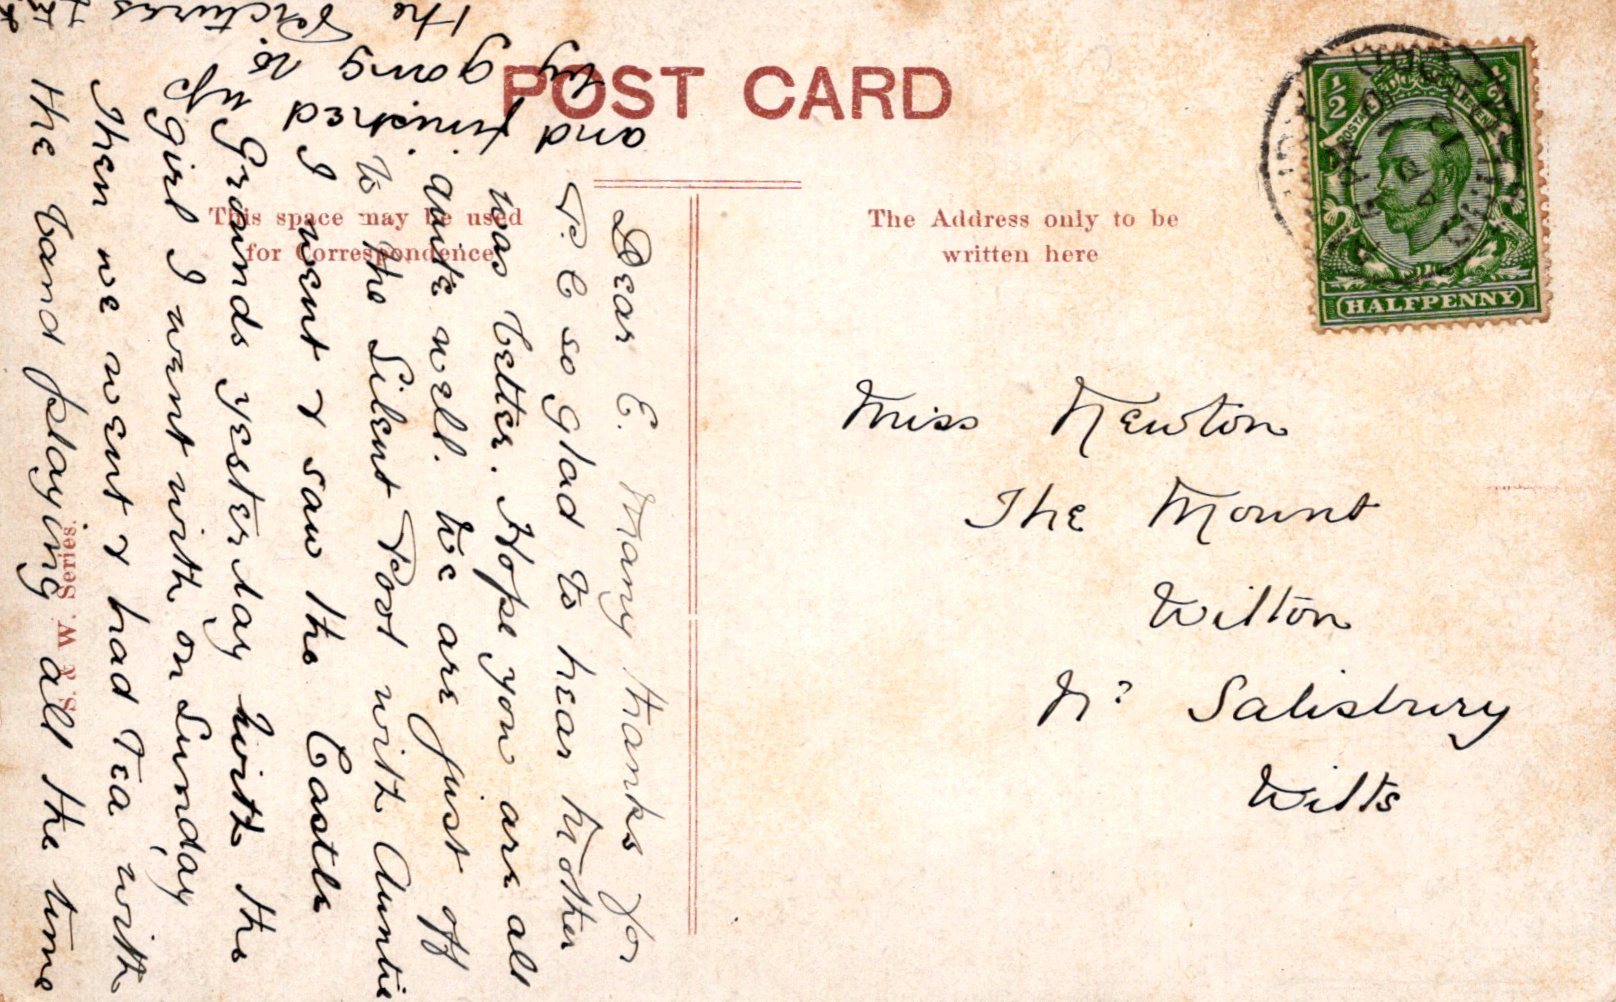 POST CARD
This space may be used
for Correspondence
The Address only to be
written here
HALFPENNY
S. & W. Series.
Miss Newton
The Mount
Wilton
Nr Salisbury
Wilts
Dear E. Many thanks for
P. C so glad to hear Mother
was better. Hope you are all
quite well. We are just off
to the Silent Pool with Auntie
I went & saw the Castle
Grounds yesterday with the
girl I went with on Sunday
Then we went & had Tea with
the band playing all the time
and finished up
by going to
the Pictures